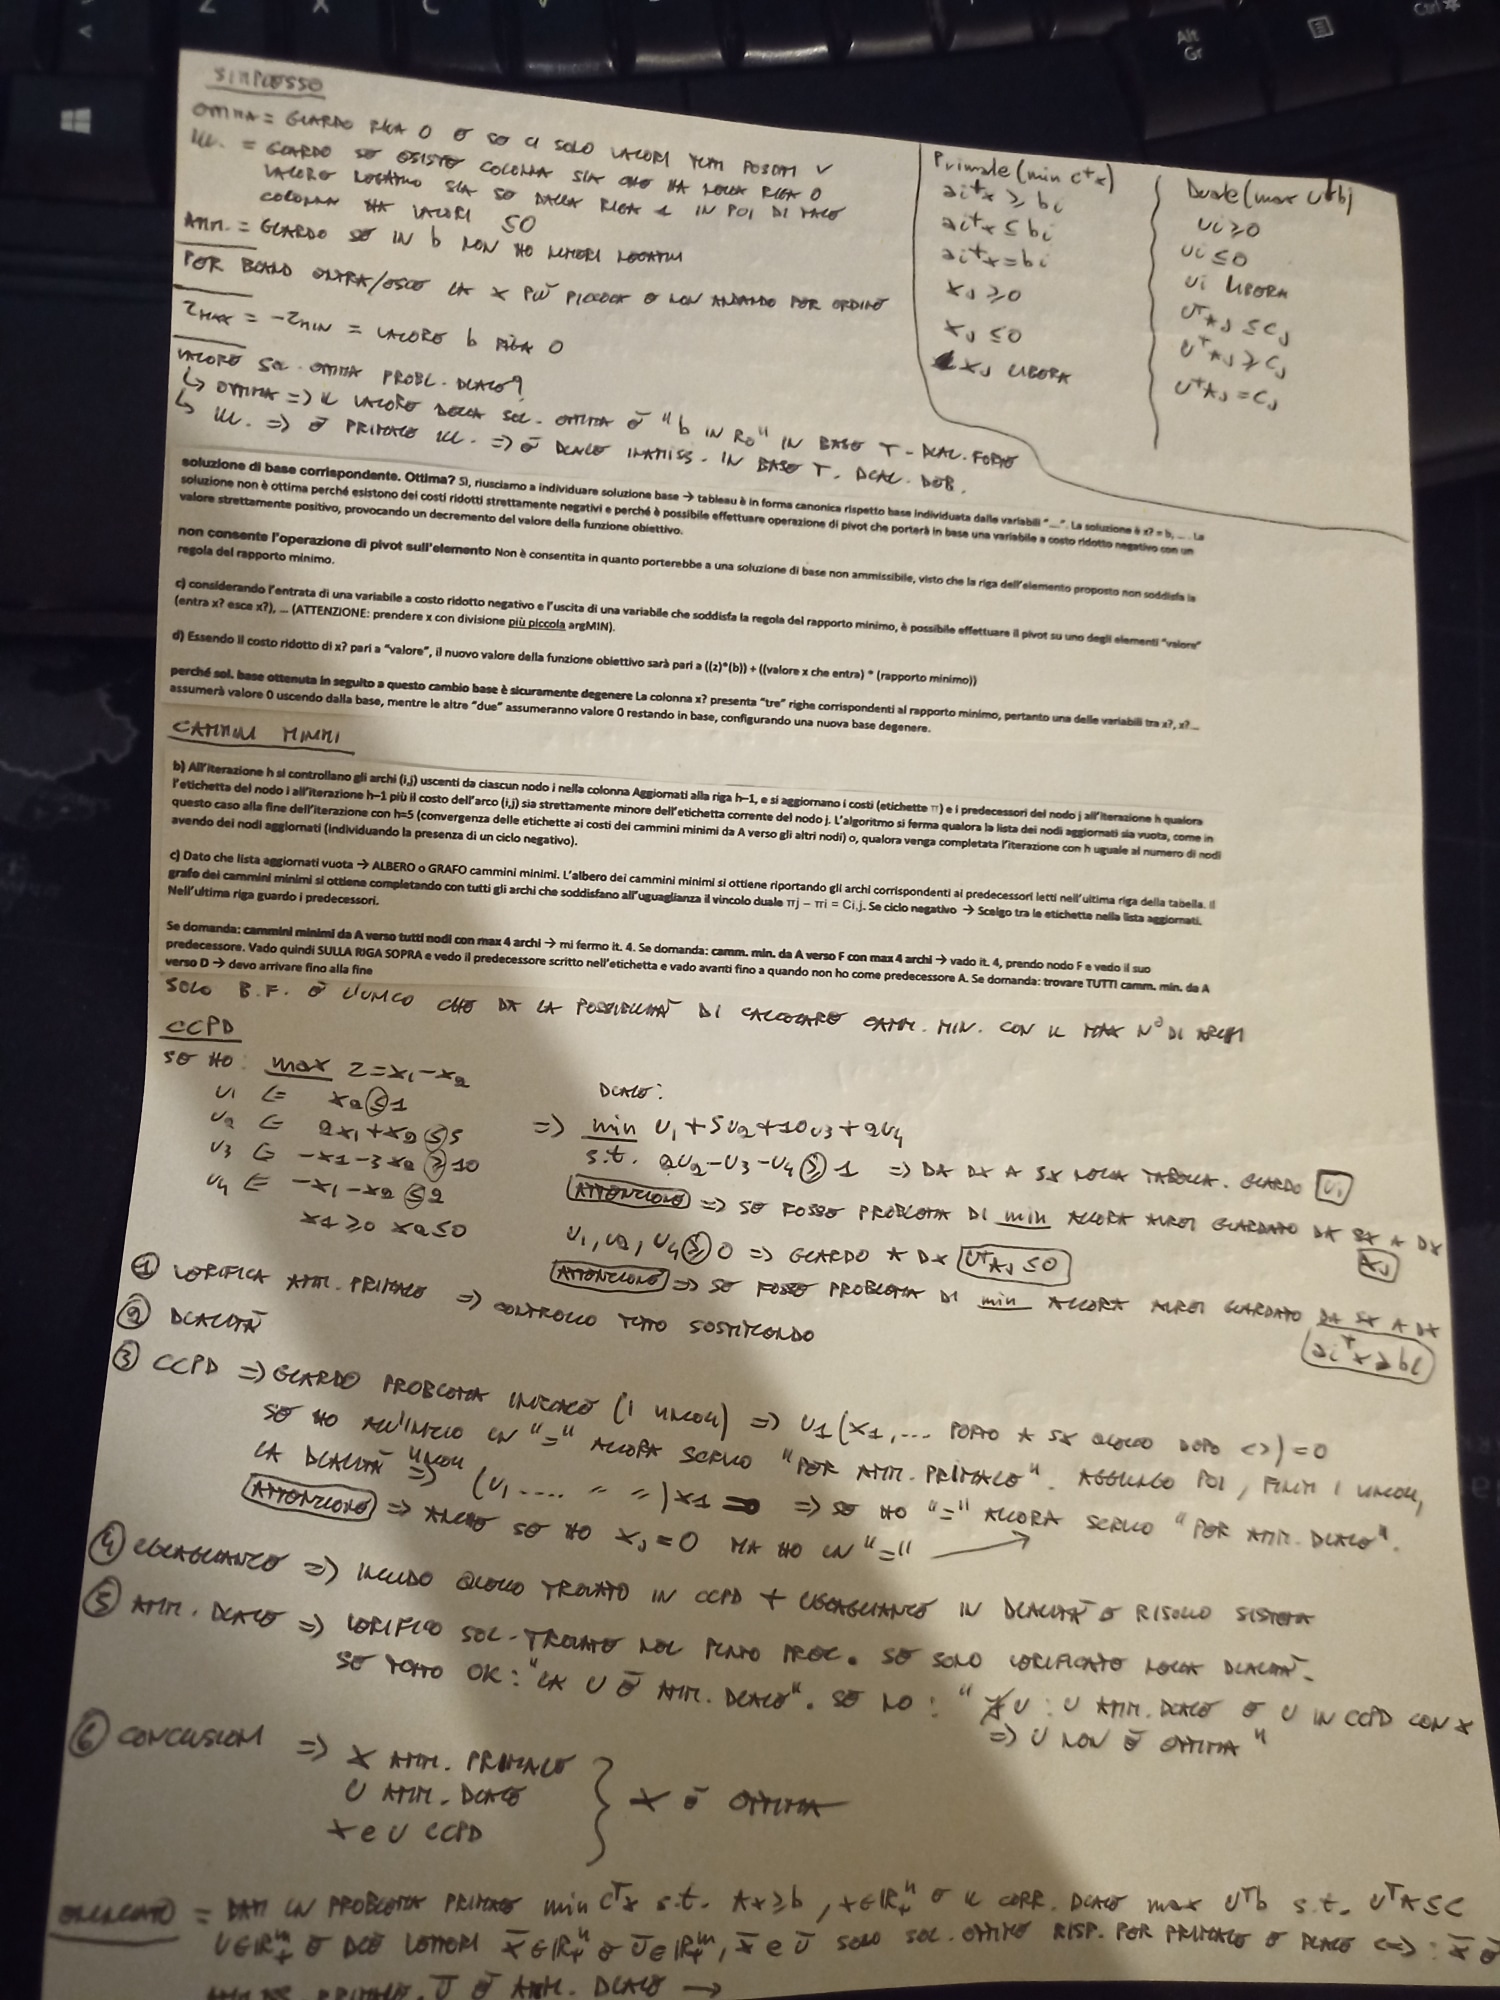 SIMPLESSO
OTTIMA = GUARDO RIGA 0 E SE CI SOLO VALORI TUTTI POSITIVI V
ILL. = GUARDO SE ESISTE COLONNA SIA CHE HA NELLA RIGA 0
VALORE NEGATIVO SIA SE DALLA RIGA 1 IN POI DI TALE
COLONNA HA VALORI ≤0
AMM. = GUARDO SE IN b NON HO NUMERI NEGATIVI
PER BLAND ENTRA/ESCE LA X PIÙ PICCOLA E NON ANDANDO PER ORDINE
ZMAX = -ZMIN = VALORE b RIGA 0
VALORE SOL. OTTIMA PROBL. DUALE?
↳ OTTIMA => IL VALORE DELLA SOL. OTTIMA È "b IN R0" IN BASE T. DUAL. FORTE
↳ ILL. => È PRIMALE ILL. => È DUALE INAMISS. IN BASE T. DUAL. DEB.
Primale (min cᵗx)
aiᵗx ≥ bi
aiᵗx ≤ bi
aiᵗx = bi
xj ≥ 0
xj ≤ 0
xj LIBERA
Duale (max Uᵗb)
ui ≥ 0
ui ≤ 0
ui LIBERA
UᵀAj ≤ cj
UᵀAj ≥ cj
UᵀAj = cj
soluzione di base corrispondente. Ottima? Sì, riusciamo a individuare soluzione base → tableau è in forma canonica rispetto base individuata dalle variabili "...". La soluzione è x? = b, ... . La
soluzione non è ottima perché esistono dei costi ridotti strettamente negativi e perché è possibile effettuare operazione di pivot che porterà in base una variabile a costo ridotto negativo con un
valore strettamente positivo, provocando un decremento del valore della funzione obiettivo.
non consente l'operazione di pivot sull'elemento Non è consentita in quanto porterebbe a una soluzione di base non ammissibile, visto che la riga dell'elemento proposto non soddisfa la
regola del rapporto minimo.
c) considerando l'entrata di una variabile a costo ridotto negativo e l'uscita di una variabile che soddisfa la regola del rapporto minimo, è possibile effettuare il pivot su uno degli elementi "valore"
(entra x? esce x?), ... (ATTENZIONE: prendere x con divisione più piccola argMIN).
d) Essendo il costo ridotto di x? pari a "valore", il nuovo valore della funzione obiettivo sarà pari a ((z)*(b)) + ((valore x che entra) * (rapporto minimo))
perché sol. base ottenuta in seguito a questo cambio base è sicuramente degenere La colonna x? presenta "tre" righe corrispondenti al rapporto minimo, pertanto una delle variabili tra x?, x?...
assumerà valore 0 uscendo dalla base, mentre le altre "due" assumeranno valore 0 restando in base, configurando una nuova base degenere.
CAMMINI MINIMI
b) All'iterazione h si controllano gli archi (i,j) uscenti da ciascun nodo i nella colonna Aggiornati alla riga h−1, e si aggiornano i costi (etichette π) e i predecessori del nodo j all'iterazione h qualora
l'etichetta del nodo i all'iterazione h−1 più il costo dell'arco (i,j) sia strettamente minore dell'etichetta corrente del nodo j. L'algoritmo si ferma qualora la lista dei nodi aggiornati sia vuota, come in
questo caso alla fine dell'iterazione con h=5 (convergenza delle etichette ai costi dei cammini minimi da A verso gli altri nodi) o, qualora venga completata l'iterazione con h uguale al numero di nodi
avendo dei nodi aggiornati (individuando la presenza di un ciclo negativo).
c) Dato che lista aggiornati vuota → ALBERO o GRAFO cammini minimi. L'albero dei cammini minimi si ottiene riportando gli archi corrispondenti ai predecessori letti nell'ultima riga della tabella. Il
grafo dei cammini minimi si ottiene completando con tutti gli archi che soddisfano all'uguaglianza il vincolo duale πj − πi = Ci,j. Se ciclo negativo → Scelgo tra le etichette nella lista aggiornati.
Nell'ultima riga guardo i predecessori.
Se domanda: cammini minimi da A verso tutti nodi con max 4 archi → mi fermo it. 4. Se domanda: camm. min. da A verso F con max 4 archi → vado it. 4, prendo nodo F e vedo il suo
predecessore. Vado quindi SULLA RIGA SOPRA e vedo il predecessore scritto nell'etichetta e vado avanti fino a quando non ho come predecessore A. Se domanda: trovare TUTTI camm. min. da A
verso D → devo arrivare fino alla fine
SOLO B.F. È L'UNICO CHE DA LA POSSIBILITÀ DI CALCOLARE CAMM. MIN. CON IL MAX N° DI ARCHI
CCPD
SE HO: max Z=x1-x2
u1 <= x2 ≤ 1
u2 <= 2x1+x2 ≤ 5
u3 <= -x1-3x2 ≥ 10
u4 <= -x1-x2 ≤ 2
x1≥0 x2≤0
DUALE:
=> min U1+5U2+10U3+2U4
s.t. 2U2-U3-U4 ≥ 1 => DA DX A SX NELLA TABELLA. GUARDO Ui
ATTENZIONE => SE FOSSE PROBLEMA DI min ALLORA AVREI GUARDATO DA SX A DX
xj
U1, U2, U4 ≥ 0 => GUARDO A DX UᵀAj ≤ 0
ATTENZIONE => SE FOSSE PROBLEMA DI min ALLORA AVREI GUARDATO DA SX A DX
aiᵀx ≥ bi
① VERIFICA AMM. PRIMALE => CONTROLLO TUTTO SOSTITUENDO
② DUALITÀ
③ CCPD => GUARDO PROBLEMA INIZIALE (I VINCOLI) => U1(x1,... PORTO A SX QUELLO DOPO <>) = 0
SE HO ALL'INIZIO UN "=" ALLORA SCRIVO "PER AMM. PRIMALE". AGGIUNGO POI, FINITI I VINCOLI,
LA DUALITÀ VINCOLI => (U1 .... " ") x1 = 0 => SE HO "=" ALLORA SCRIVO "PER AMM. DUALE".
ATTENZIONE => ANCHE SE HO xj=0 MA HO UN "="
④ UGUAGLIANZE => INCLUDO QUELLO TROVATO IN CCPD + UGUAGLIANZE IN DUALITÀ E RISOLVO SISTEMA
⑤ AMM. DUALE => VERIFICO SOL. TROVATE NEL PUNTO PREC. SE SONO VERIFICATE NELLA DUALITÀ.
SE TUTTO OK: "LA U È AMM. DUALE". SE NO: "∄ U : U AMM. DUALE E U IN CCPD CON X
=> U NON È OTTIMA"
⑥ CONCLUSIONI => X AMM. PRIMALE
U AMM. DUALE
X e U CCPD
} X È OTTIMA
ENUNCIATO = DATI UN PROBLEMA PRIMALE min cᵀx s.t. Ax≥b, x∈ℝ₊ⁿ E IL CORR. DUALE max Uᵀb s.t. UᵀA≤C
U∈ℝ₊ᵐ E DUE VETTORI x̄∈ℝ₊ⁿ E Ū∈ℝ₊ᵐ, x̄ e ū SONO SOL. OTTIME RISP. PER PRIMALE E DUALE <=> : x̄ È
PRIMALE. Ū È AMM. DUALE →